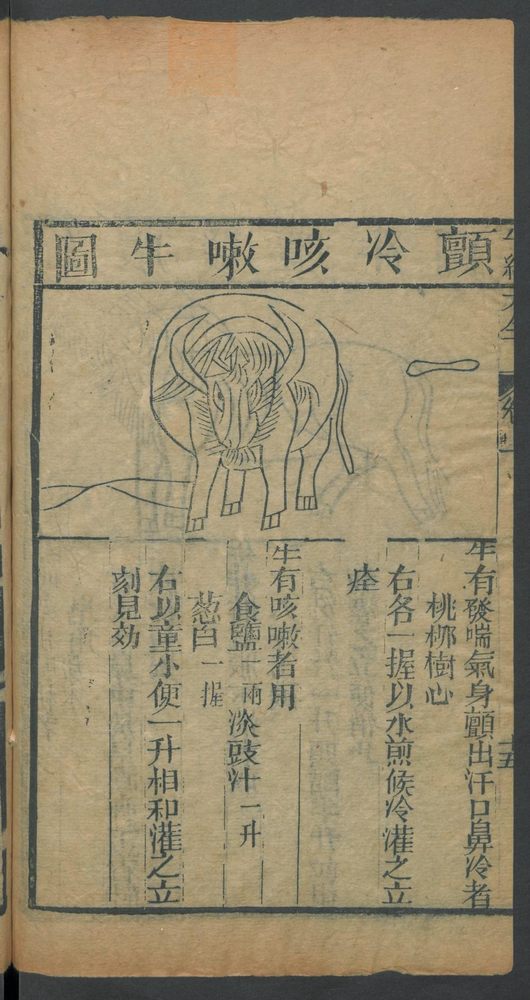 顫冷咳嗽牛圖
牛有發喘氣身顫出汗口鼻冷者
桃柳樹心
右各一握以水煎候冷灌之立
痊
牛有咳嗽者用
食鹽一兩 淡豉汁一升
葱白一握
右以童小便一升相和灌之立
刻見効